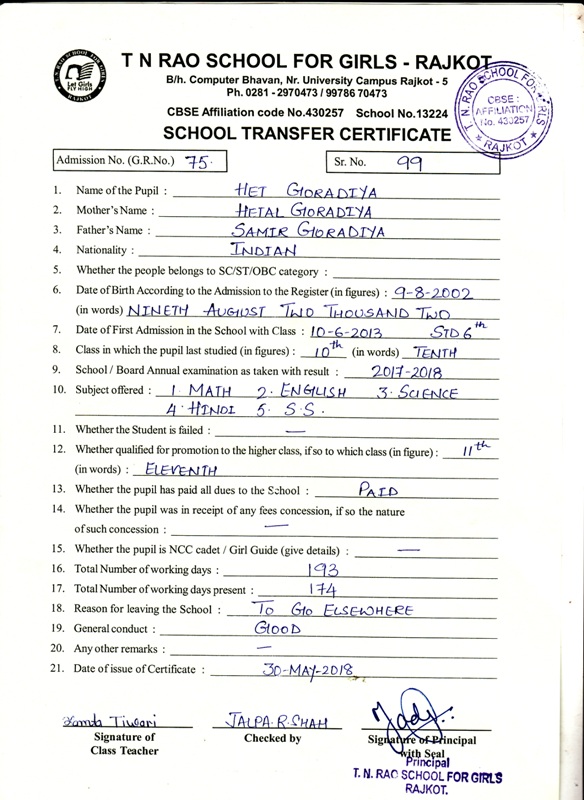 T. N. RAO SCHOOL FOR GIRLS
Let Girls
FLY HIGH
RAJKOT
T N RAO SCHOOL FOR GIRLS - RAJKOT
B/h. Computer Bhavan, Nr. University Campus Rajkot - 5
Ph. 0281 - 2970473 / 99786 70473
CBSE Affiliation code No.430257 School No.13224
T. N. RAO SCHOOL FOR GIRLS
CBSE :
AFFILIATION
No. 430257
★ RAJKOT ★
SCHOOL TRANSFER CERTIFICATE
Admission No. (G.R.No.) 75. Sr. No. 99
1. Name of the Pupil : HET GORADIYA
2. Mother's Name : HETAL GORADIYA
3. Father's Name : SAMIR GORADIYA
4. Nationality : INDIAN
5. Whether the people belongs to SC/ST/OBC category :
6. Date of Birth According to the Admission to the Register (in figures) : 9-8-2002
(in words) NINETH AUGUST TWO THOUSAND TWO
7. Date of First Admission in the School with Class : 10-6-2013 STD 6th
8. Class in which the pupil last studied (in figures) : 10th (in words) TENTH
9. School / Board Annual examination as taken with result : 2017-2018
10. Subject offered : 1. MATH 2. ENGLISH 3. SCIENCE
4. HINDI 5. S.S.
11. Whether the Student is failed : —
12. Whether qualified for promotion to the higher class, if so to which class (in figure) : 11th
(in words) : ELEVENTH
13. Whether the pupil has paid all dues to the School : PAID
14. Whether the pupil was in receipt of any fees concession, if so the nature
of such concession : —
15. Whether the pupil is NCC cadet / Girl Guide (give details) : —
16. Total Number of working days : 193
17. Total Number of working days present : 174
18. Reason for leaving the School : TO GO ELSEWHERE
19. General conduct : GOOD
20. Any other remarks : —
21. Date of issue of Certificate : 30-MAY-2018
Tiwari JALPA.R.SHAH
Signature of Class Teacher
Checked by
Signature of Principal
with Seal
Principal
T. N. RAO SCHOOL FOR GIRLS
RAJKOT.